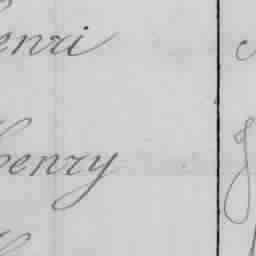 enri
henry